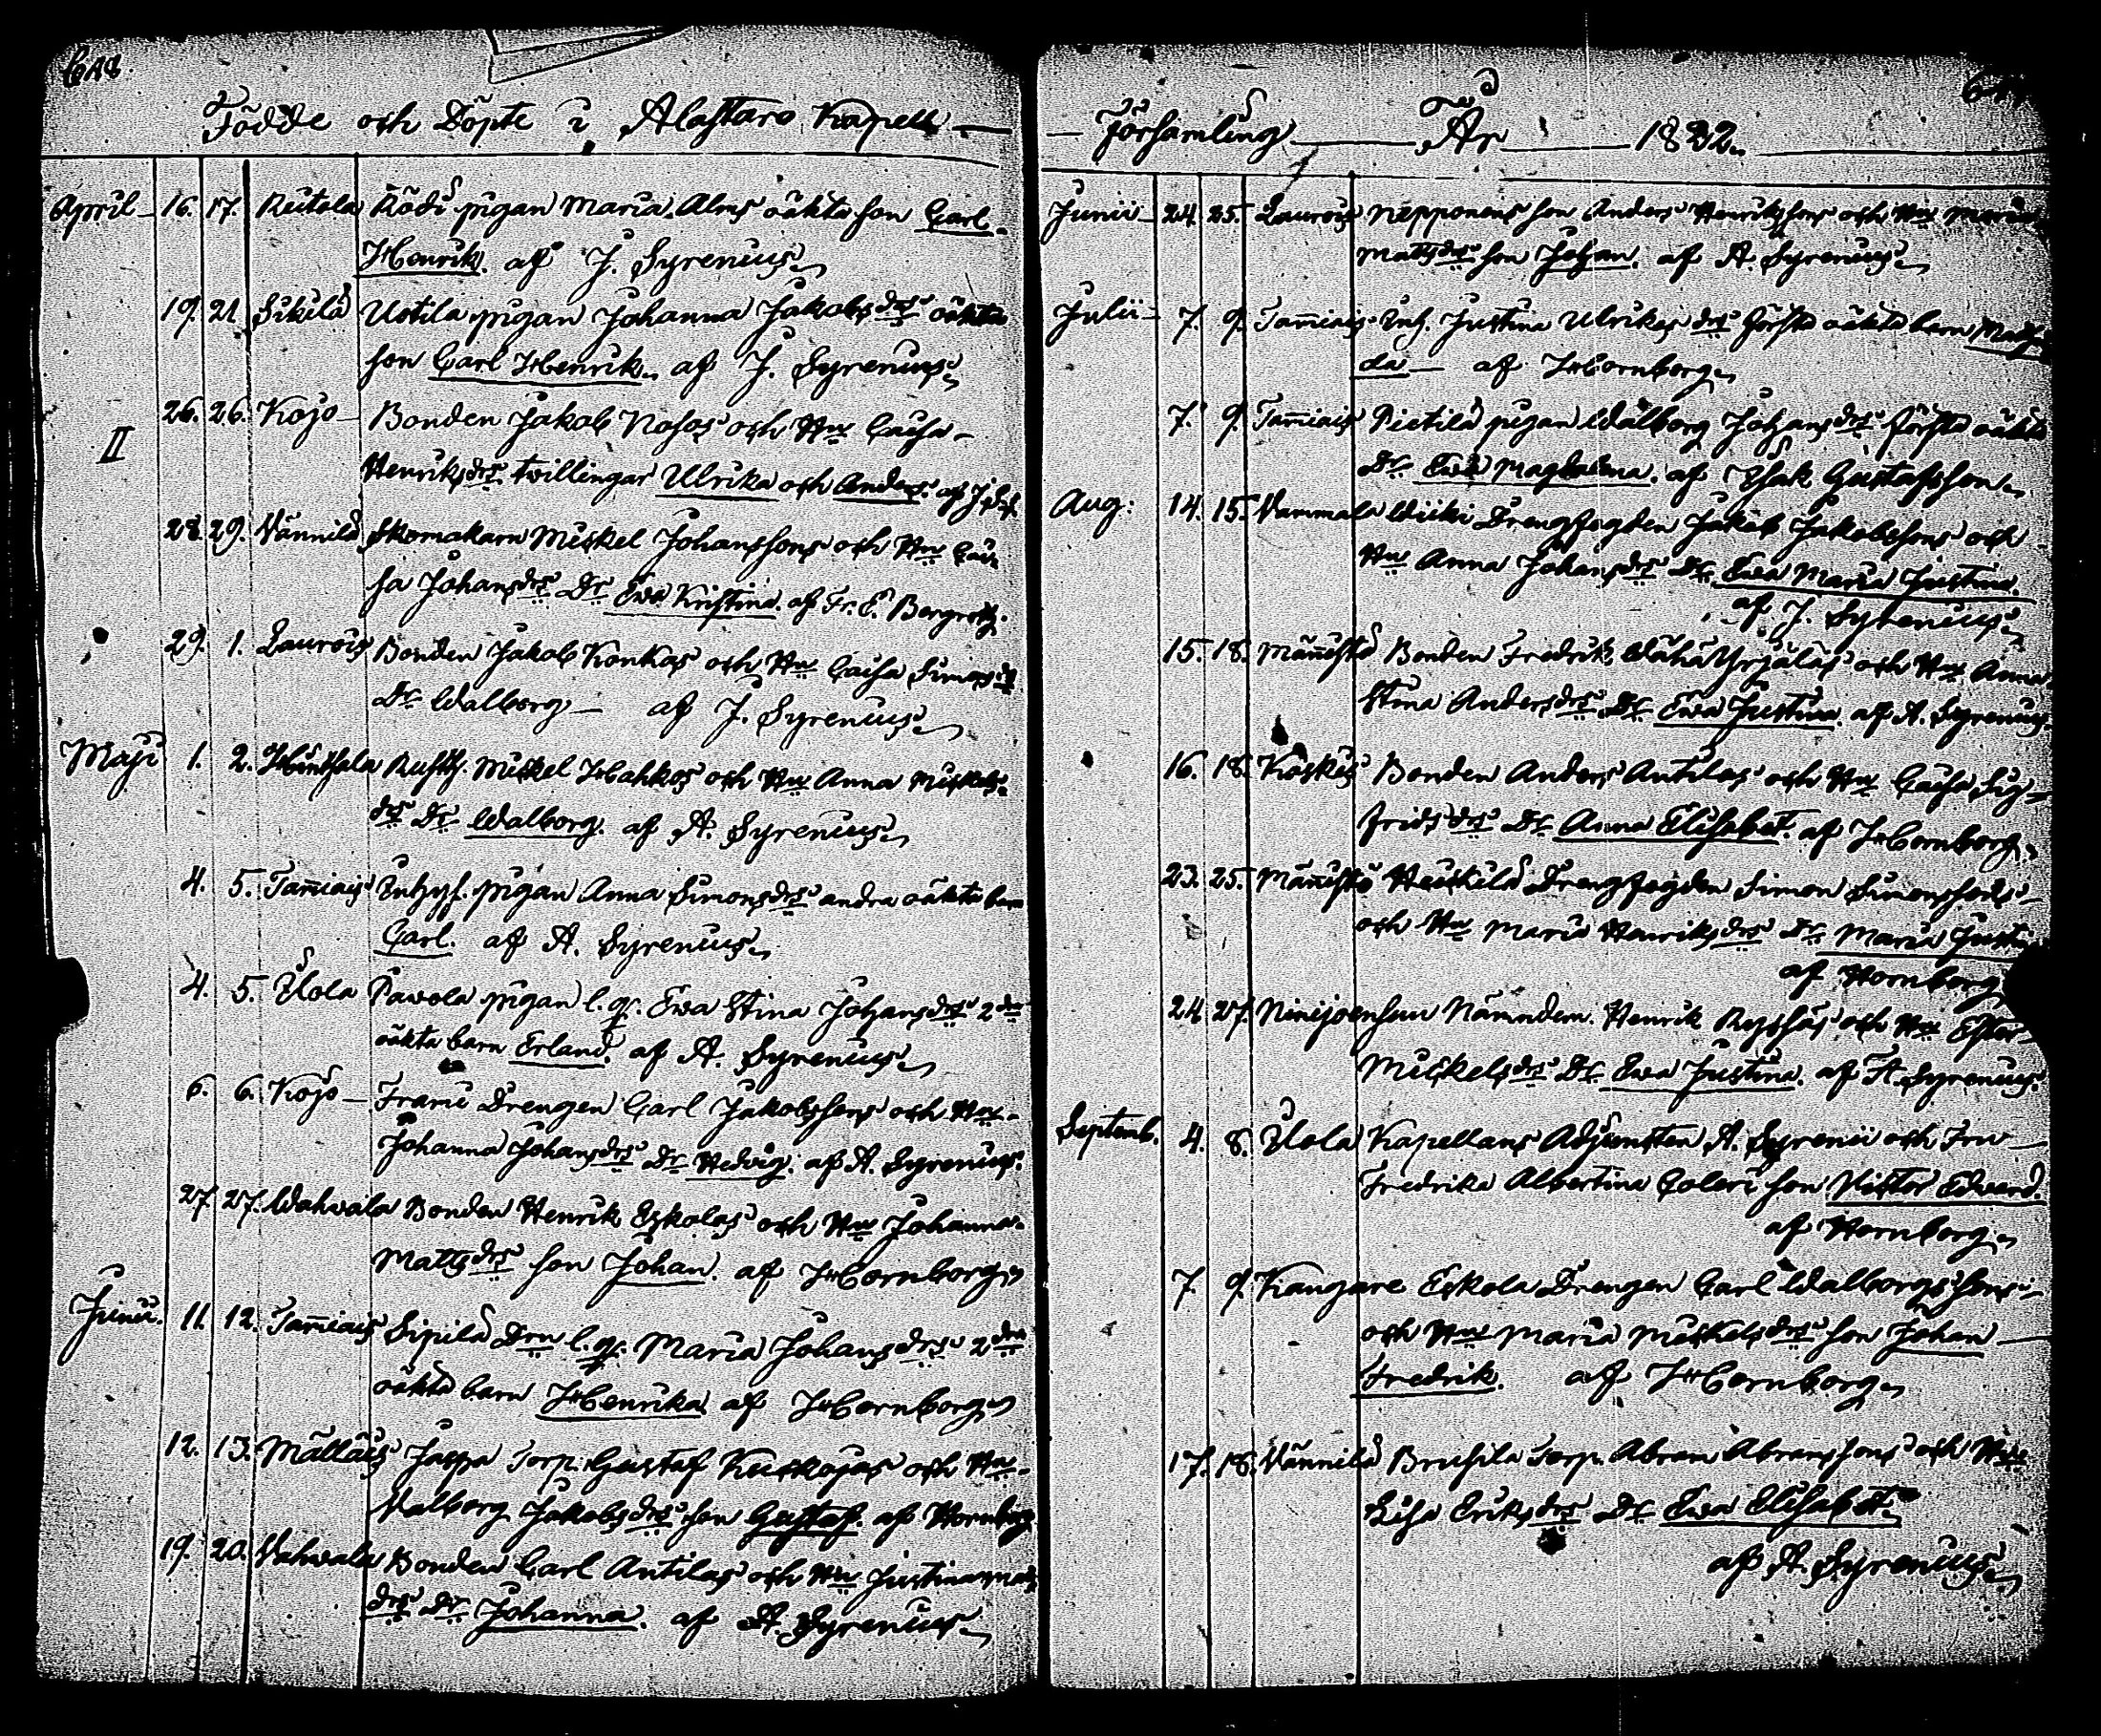 648.
Födde och Döpte i Alastaro Kapell —
April 16. 17. Reitola Ködi pigan Maria Alms oäkta son Carl
Henrik. af J. Syrenius
19. 21. Sikilä Uotila pigan Johanna Jakobsdr oäkta
son Carl Henrik. af J. Syrenius
26. 26. Kojo — Bonden Jakob Nohas och Hu Caisa
II Henriksdrs twillingar Ulrika och Anders. af J. S.
28. 29. Vännilä Skomakarn Mickel Johanssons och Hu Cai
sa Johansdrs Dr Ewa Kristina. af Fr. E. Bergroth.
29. 1. Laurois Bonden Jakob Konkas och Hu Caisa Simonsd
Dr Walborg — af J. Syrenius
Maji 1. 2. Hinthala Rusth. Mickel Hahkos och Hu Anna Mickels
drs Dr Walborg. af A. Syrenius
4. 5. Tammiais Inhys. pigan Anna Simonsdrs andra oäkta barn
Carl. af A. Syrenius
4. 5. Ylola Pawola pigan l. q. Ewa Stina Johansdrs 2dra
oäkta barn Erland. af A. Syrenius
6. 6. Kojo — Frani Drengen Carl Jakobssons och Hu
Johanna Johansdrs Dr Hedvig. af A. Syrenius.
27. 27. Wahvala Bonden Henrik Eskolas och Hu Johanna
Mattsdrs son Johan. af Hornborg
Junii. 11. 12. Tammiais Sipilä Drn l. q. Maria Johansdrs 2dra
oäkta barn Henrika af Hornborg
12. 13. Mällais Jaspa Torp. Gustaf Kuskojas och Hu
Valborg Jakobsdrs son Gustaf. af Hornborg
19. 20. Vahvala Bonden Carl Antilas och Hu Justina Mats
drs Dr Johanna. af A. Syrenius
— Församling — År — 1832.
Junii — 24. 25. Laurois Nepponens son Anders Henrikssons och Hu Maria
Mattsdrs son Johan. af A. Syrenius
Julii — 7. 9. Tammiais Inh. Justina Ulrikas drs första oäkta barn
da — af Hornborg
7. 9. Tammiais Pietilä pigan Walborg Johansdrs första oäkta
Dr Ewa Magdalena. af Isak Gustafsson
Aug: 14. 15. Vammala Wiiki Drengfogden Jakob Jakobssons och
Hu Anna Johansdrs Dr Ewa Maria Justina.
af J. Syrenius
15. 18. Männistö Bonden Fredrik Wähä Yrjäläs och Hu Anna
Stina Andersdrs Dr Ewa Justina. af A. Syrenius
16. 18. Koskis Bonden Anders Antilas och Hu Caisa Sig-
fridsdrs Dr Anna Elisabet. af Hornborg
23. 25. Männistö Heikkilä Drengfogden Simon Simonssons
och Hu Maria Henriksdrs Dr Maria Justi
af Hornborg
24. 27. Niinijoensuu Nämndem. Henrik Ryssäs och Hu Ester
Mickelsdrs Dr Ewa Justina. af A. Syrenius.
Septemb. 4. 8. Ylola Kapellans Adjunkten A. Syrenii och Fru
Fredrika Albertina Coleri son Victor Edvard.
af Hornborg
7. 9. Kangare Eskola Drengen Carl Walborgssons
och Hu Maria Mickelsdrs son Johan
Fredrik. af Hornborg
17. 18. Vännilä Brusila Torp. Abram Abramssons och Hu
Lisa Eriksdrs Dr Ewa Elisabet.
af A. Syrenius